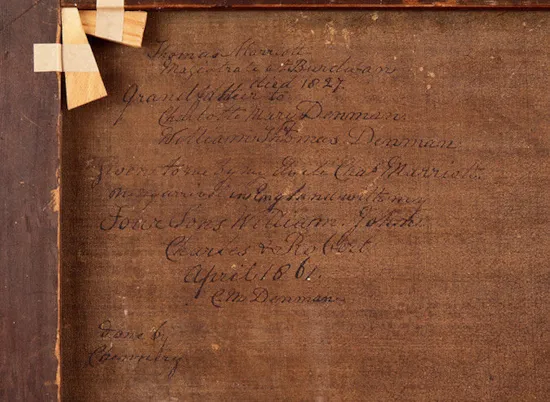 Thomas Marriott
Magistrate at Burdwan
died 1827.
Grandfather to
Charlotte Mary Denman.
William Thomas Denman,
Given to me by my Uncle Chas. Marriott.
on my arrival in England with my
Four Sons William, John.
Charles & Robert
April 1861.
C. M. Denman.
done by
Chinnery